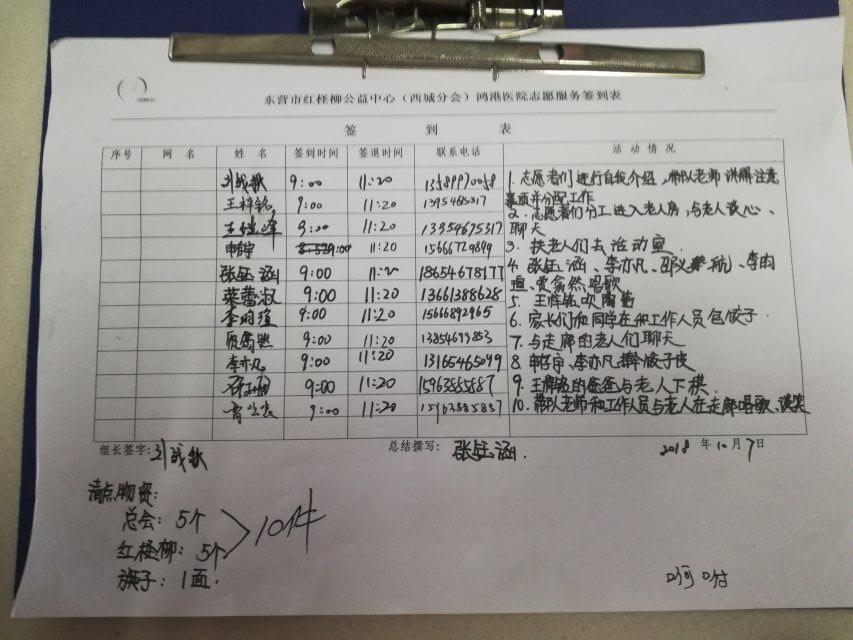 东营市红柽柳公益中心（西城分会）鸿港医院志愿服务签到表
签 到 表
序号 网 名 姓 名 签到时间 签退时间 联系电话 活动情况
刘战歌 9:00 11:20
王梓铭 9:00 11:20
王继峰 9:00 11:20 13354675317
9:00 11:20 15666729899
张钰涵 9:00 11:20 18654678177
9:00 11:20 13661388628
李雨瑄 9:00 11:20 15666892965
9:00 11:20 13854699853
李亦凡 9:00 11:20 13165465099
9:00 11:20 15963885887
9:00 11:20 15963885887
1. 志愿者们进行自我介绍，带队老师讲解注意
事项并分配工作
2. 志愿者们分工进入老人房，与老人谈心、
聊天
3. 扶老人们去活动室
4. 张钰涵、李亦凡、、李雨
瑄、唱歌
5. 吹陶笛
6. 家长们和同学在和工作人员包饺子
7. 与走廊的老人们聊天
8. 李亦凡擀饺子皮
9. 的爸爸与老人下棋
10. 带队老师和工作人员与老人在走廊唱歌、谈笑
组长签字：刘战歌 总结撰写：张钰涵 2018 年 10 月 7 日
清点物资：
总会：5个
红柽柳：5个 10件
旗子：1面